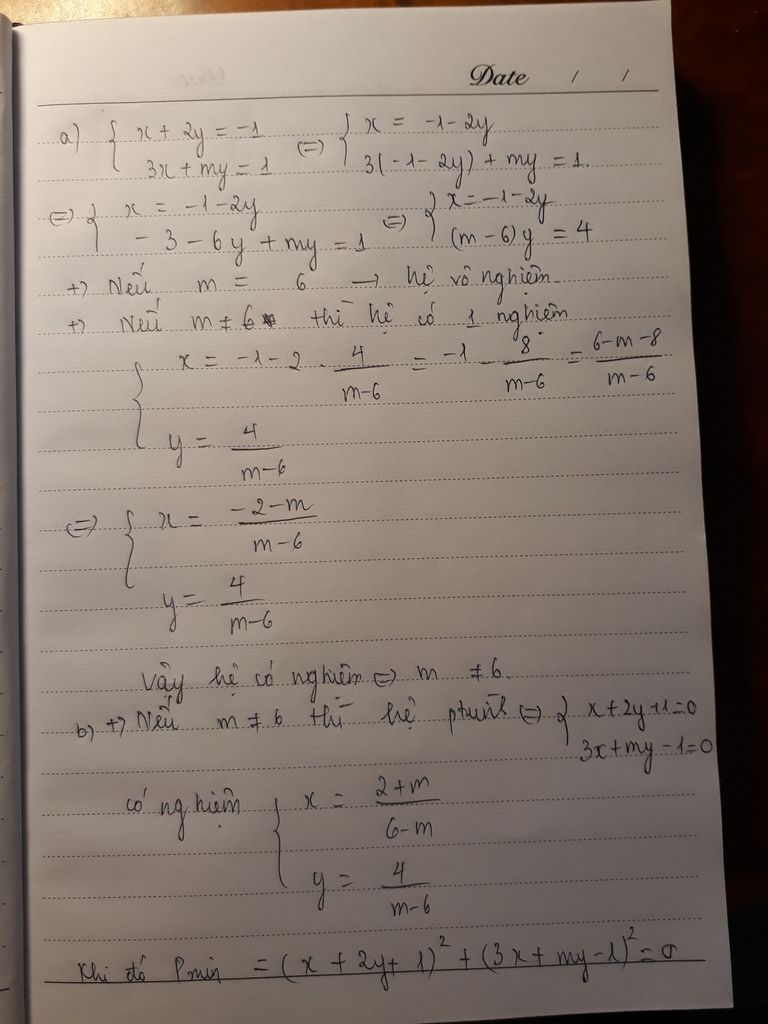 Date / /
a) { x + 2y = -1 (=) { x = -1-2y
3x + my = 1 3(-1-2y) + my = 1.
(=) { x = -1-2y (=) { x = -1-2y
-3-6y + my = 1 (m-6)y = 4
+) Nếu m = 6 → hệ vô nghiệm.
+) Nếu m ≠ 6 thì hệ có 1 nghiệm
{ x = -1-2 . 4/(m-6) = -1 - 8/(m-6) = (6-m-8)/(m-6)
y = 4/(m-6)
(=) { x = (-2-m)/(m-6)
y = 4/(m-6)
Vậy hệ có nghiệm (=) m ≠ 6.
b) +) Nếu m ≠ 6 thì hệ (=) { x+2y+1=0
3x+my-1=0
có nghiệm { x = (2+m)/(6-m)
y = 4/(m-6)
Khi đó Pmin = (x + 2y + 1)² + (3x + my - 1)² = 0